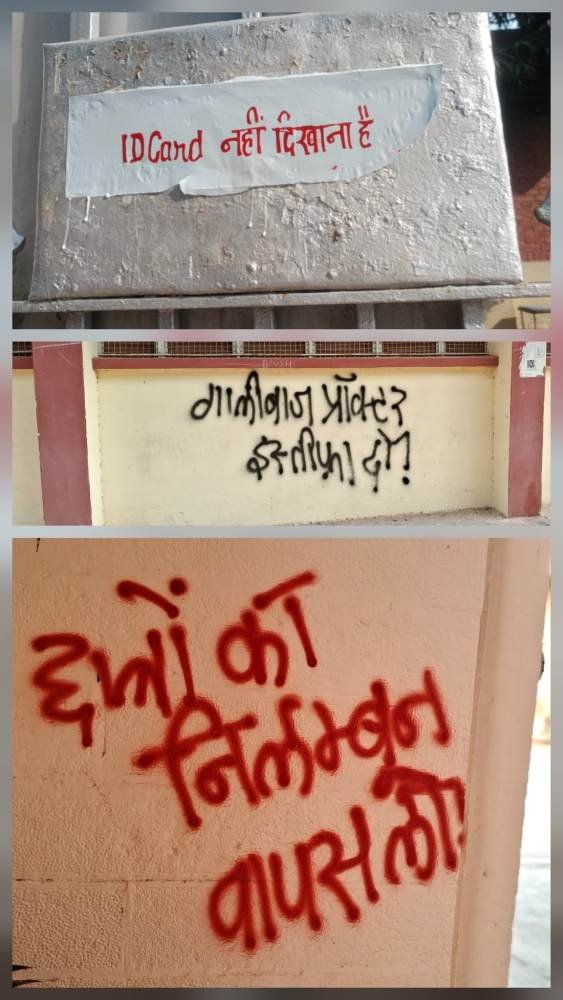 ID Card नहीं दिखाना है
गालीबाज प्रॉक्टर
इस्तीफ़ा दो!
छात्रों का
निलम्बन
वापस लो!